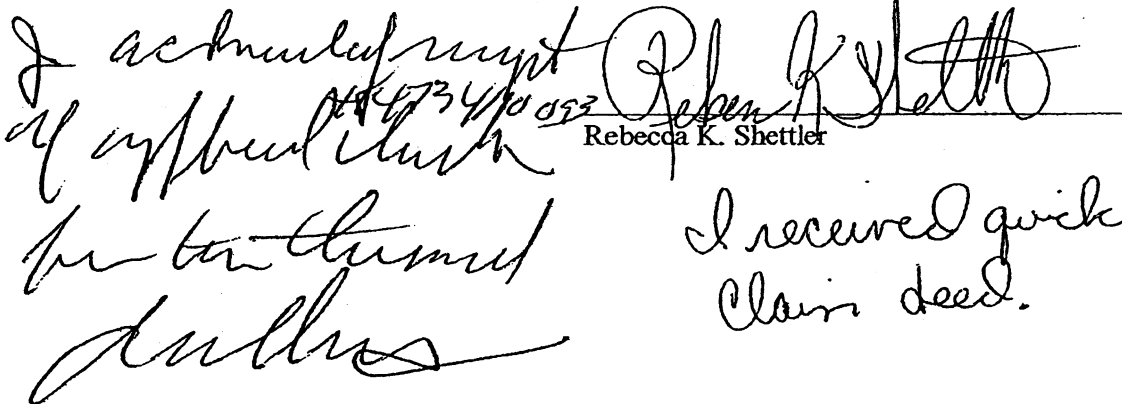 I acknowledge receipt
of certified check
for ten thousand
dollars
Rebecca K Shettler
Rebecca K. Shettler
I received quick
Claim deed.